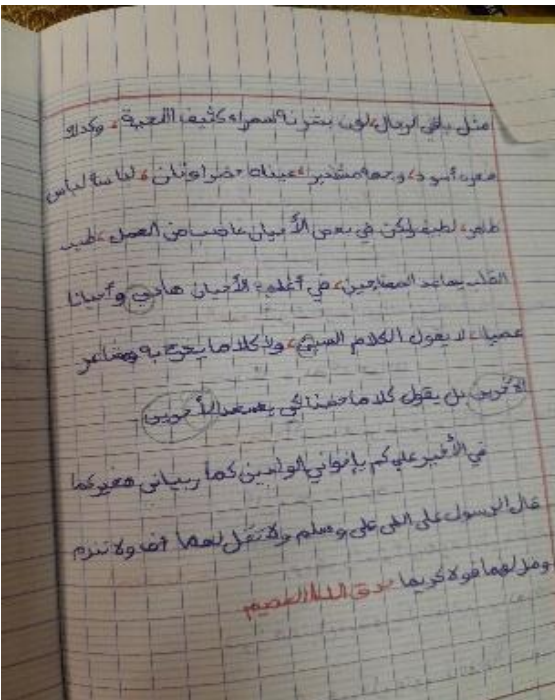 مثل باقي الرجال، لون بشرته أسمراء كثيف اللحية، وكذلك
شعره أسود، وجهه مستدير، عيناه خضراوتان، لباسه لباس
طاهر، لطيف ولكن في بعض الأحيان غاضب من العمل، طيب
القلب يساعد المحتاجين، في أغلب الأحيان هادئ وأحيانا
عصبيا، لا يقول الكلام السيئ، ولا كلاما يجرح به ومشاعر
الآخرين بل يقول كلاما حسنا لكي يسعد الأخرين
في الأخير عليكم بإخواني الولدين كما ربياني صغير كما
قال الرسول صلى الله على وسلم ولا تقل لهما أف ولا تنهرم
وقل لهما قولا كريما صدق الله العظيم